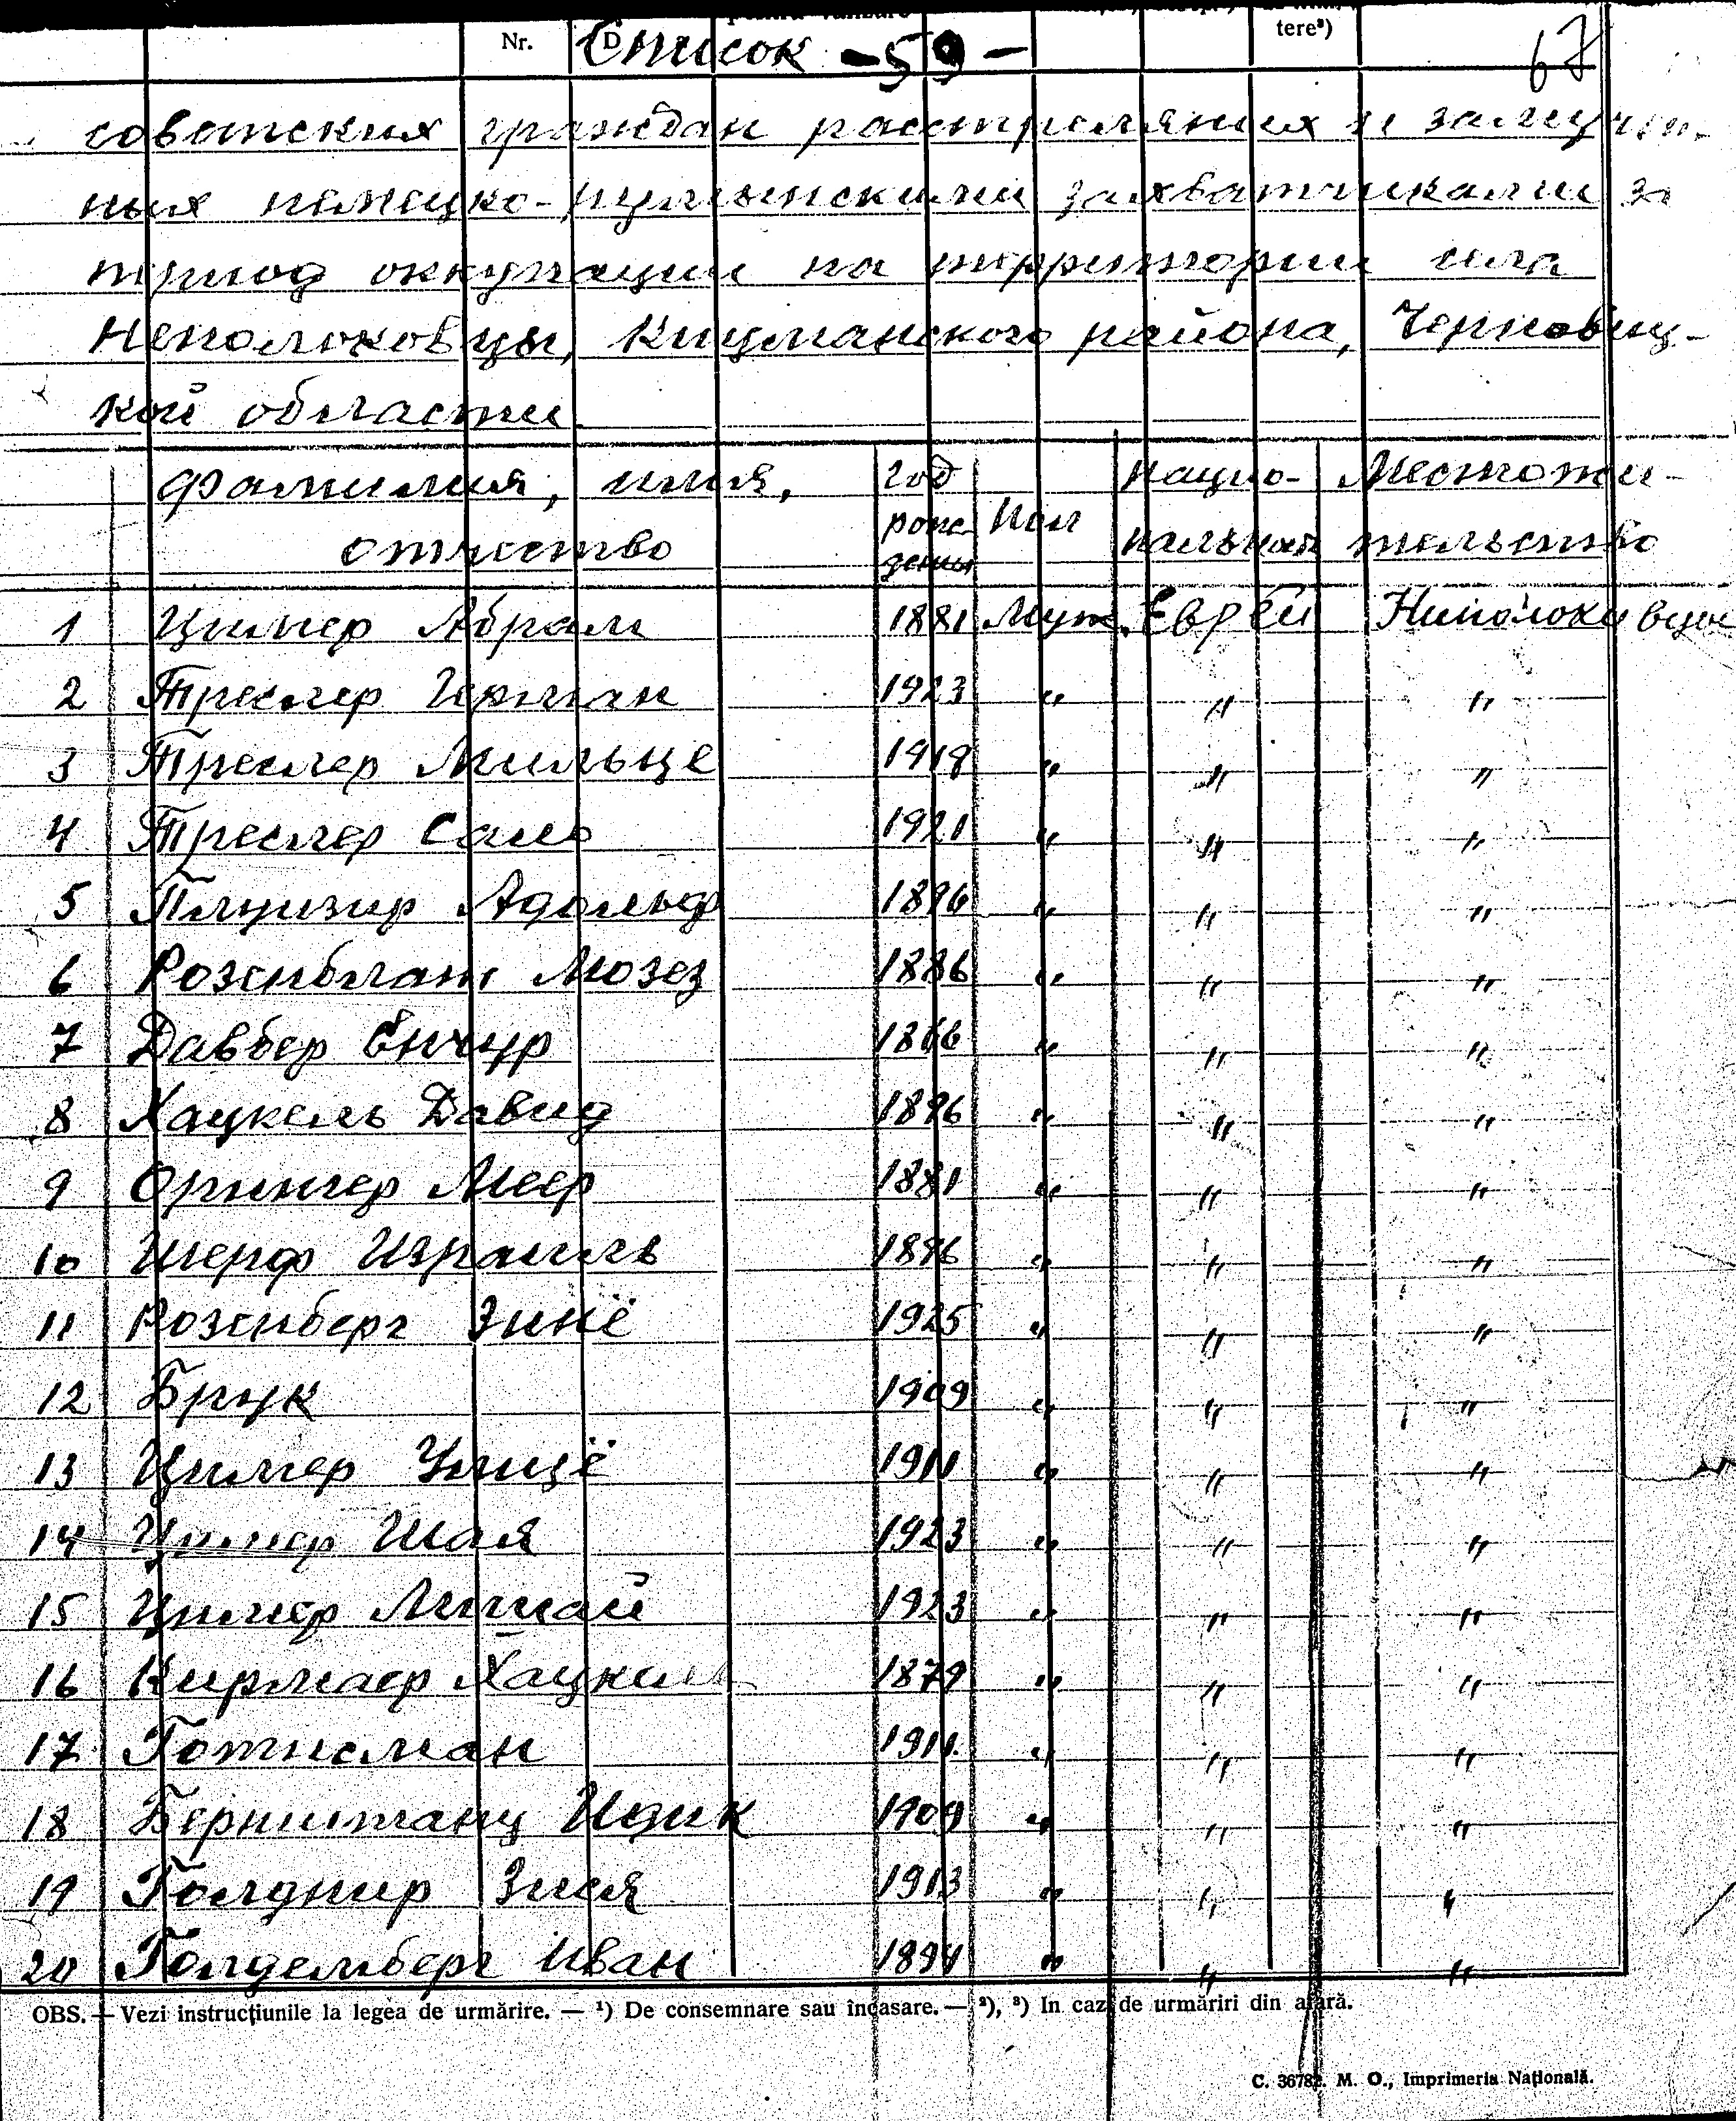 Nr. D tere²)
Список -59- 67
советских граждан расстреляних и замучен-
ных немецко-румынскими захватчиками за
период оккупации на территории села
Неполоковцы, Кицманского района, Черновиц-
кой области
Фамилия, имя, отчество год рождения Пол Национальност Местожительство
1 Цимер Абрам 1881 Муж. Еврей Ниполокивцы
2 Треслер Герман 1923 " " "
3 Треслер Мильце 1918 " " "
4 Треслер Само 1921 " " "
5 Адольф 1896 " " "
6 Розенблат Мозез 1886 " " "
7 Давбер 1866 " " "
8 Хацкель Давид 1896 " " "
9 Меер 1881 " " "
10 Шерф Израиль 1886 " " "
11 Розенберг Зинё 1925 " " "
12 Брук 1909 " " "
13 Цимер 1911 " " "
14 Цимер Шая 1923 " " "
15 Цимер 1923 " " "
16 Кирмаер 1879 " " "
17 Готисман 1911. " " "
18 Ицик 1909 " " "
19 Голднир Зися 1913 " " "
20 Голдемберг Иван 1894 " " "
OBS. — Vezi instrucțiunile la legea de urmărire. — ¹) De consemnare sau încasare. — ²), ³) In caz de urmăriri din afară.
C. 36782. M. O., Imprimeria Națională.